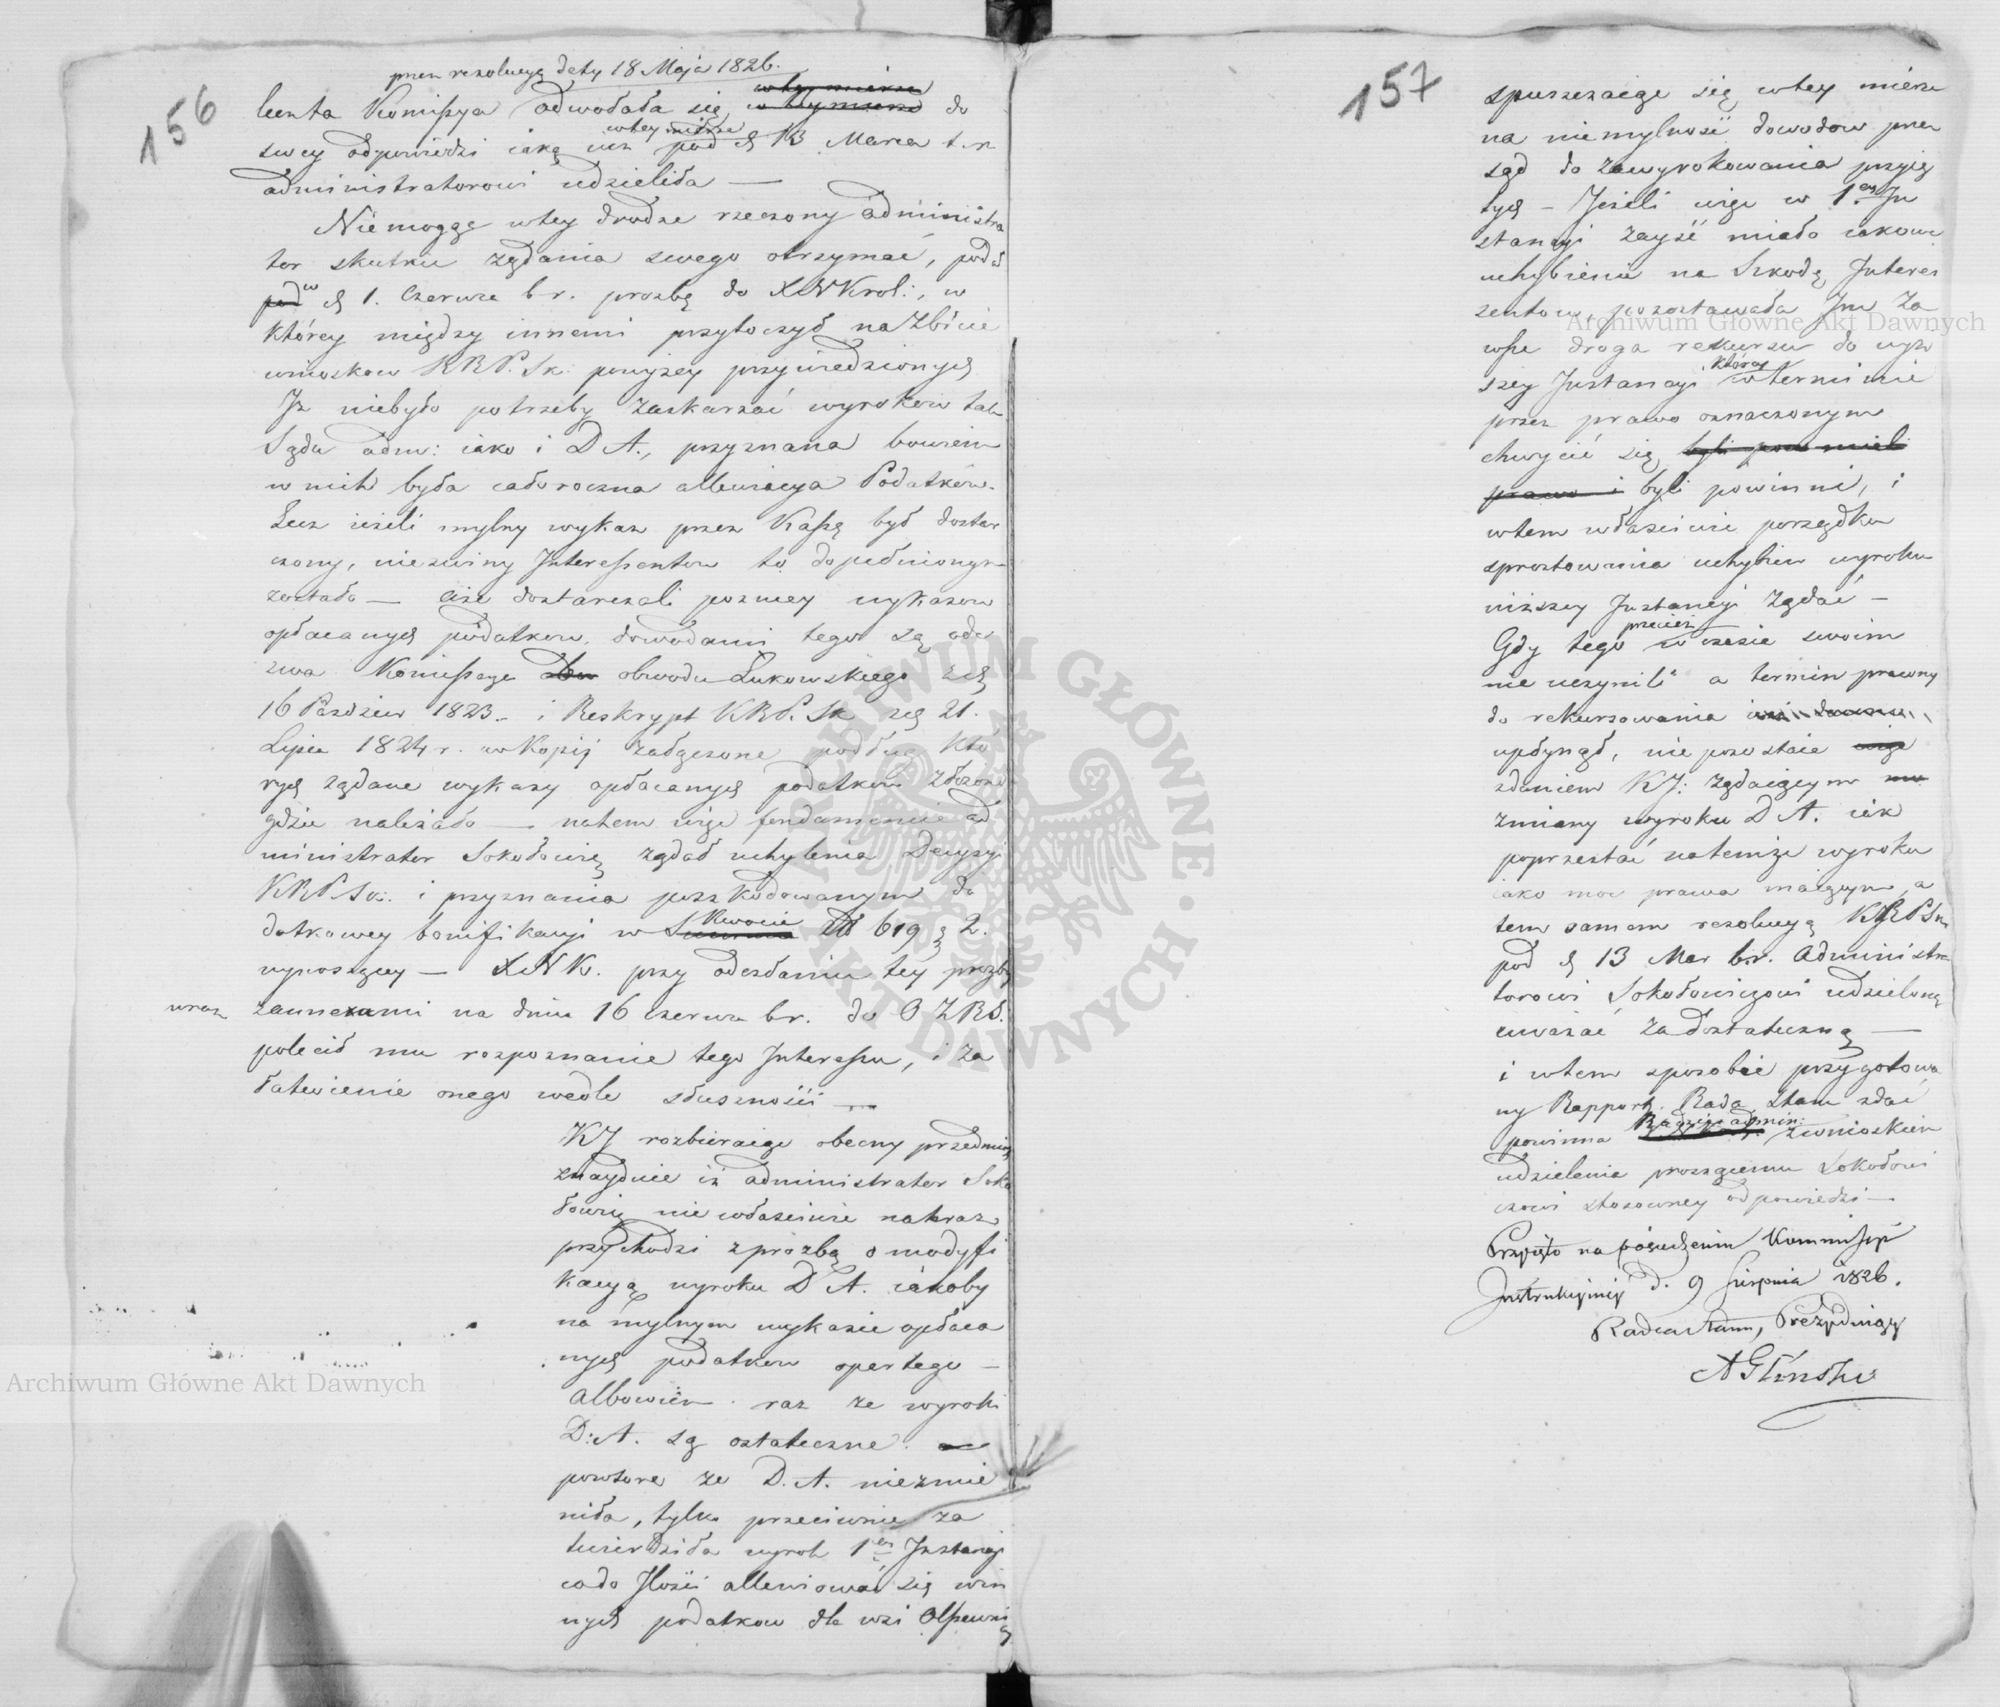 156
przez rezolucyą dety 18 Maja 1826.
lenta Komissya odwołała się do
swey odpowiedzi iaką iuż wtey mierze pod d 13 Marca t. r.
administratorowi udzieliła —
Niemogąc wtey drodze rzeczony administra
tor skutku żądania swego otrzymać, podał
pod w d 1. Czerwca b r. prozbę do XNKrol:, w
którey między innemi przytoczył na zbicie
wnioskow KRP.Sk: powyżey przywiedzionych
Iż niebyło potrzeby zaskarzać wyrokow tak
Sądu adm: iako i D A., przyznana bowiem
w nich była całoroczna allewiacya Podatków.
Lecz ieżeli mylny wykaz przez Kassę był dostar
czony, niezwiny Interessentow to dopełnionym
zostało — ciż dostarczali pozniey wykazow
opłacanych podatkow, dowodami tego są ode
zwa Komissyi obwodu Łukowskiego z d
16 Pazdzier 1823. i Reskrypt KRP.Sk z d 21.
Lipca 1824 r. w Kopij załączone, podług któ
rych żądane wykazy opłacanych podatkow złożone
gdzie należało — natem więc fundamencie ad
ministrator Sokołowicz żądał uchylenia Decyzyi
KRPSk: i przyznania poszkodowanym do
datkowey bonifikacyi w Summie Kwocie zł 619 g 2.
wynoszącey — XNK. przy odesłaniu tey prozby
wraz zannexami na dniu 16 czerwca br. do OZRS.
polecił mu rozpoznanie tego Interessu, i za
łatwienie onego wedle słuszności —
KJ rozbieraiąc obecny przedmiot
znayduie iż administrator Soko
łowicz niewłaściwie nateraz
przychodzi z prozbą o modyfi
kacyą wyroku D A. iakoby
na mylnym wykazie opłaca
nych podatkow opartego —
Albowiem raz że wyroki
D:A. są ostateczne.
powtore że D. A. niezmie
niła, tylko przeciwnie za
twierdziła wyrok 1ey Instancyi
co do Ilości allewiować się win
nych podatkow dla wsi Olszewnicy
157
spuszczaiąc się wtey mierze
na niemylność dowodow przez
sąd do zawyrokowania przyię
tych — Jeżeli więc w 1ey In
stancyi zayść miało iakowe
uchybienie na Szkodę Interes
sentow, pozostawała Im za
wsze droga rekursu do wyż
szey Instancyi którey w terminie
przez prawo oznaczonym
chwycić się byli prawo i byli powinni, i
wtem właściwie porządku
sprostowania uchybień wyroku
niższey Instancyi żądać —
Gdy tego przecież w czasie swoim
nie uczynili a termin prawny
do rekursowania
upłynął, nie pozostaie więc
zdaniem KJ: żądaiącym
zmiany wyroku D A. iak
poprzestać natemże wyroku
iako moc prawa maiącym, a
tem samem rezolucyą KRPSk
pod d 13 Mar b.r. Administra
torowi Sokołowiczowi udzieloną
uważać za dostateczną —
i wtem sposobie przygotowa
ny Rapport Rada Stanu zdać
powinna Radzie admin: z wnioskiem
udzielenia proszącemu Sokołowi
czowi stosowney odpowiedzi —
Przyięto na posiedzeniu Kommissyi
Instrukcyiney d. 9 Sierpnia 1826.
Radca Stanu, Prezyduiący
A Gliński
Archiwum Główne Akt Dawnych
Archiwum Główne Akt Dawnych
ARCHIWUM GŁÓWNE · AKT DAWNYCH ·